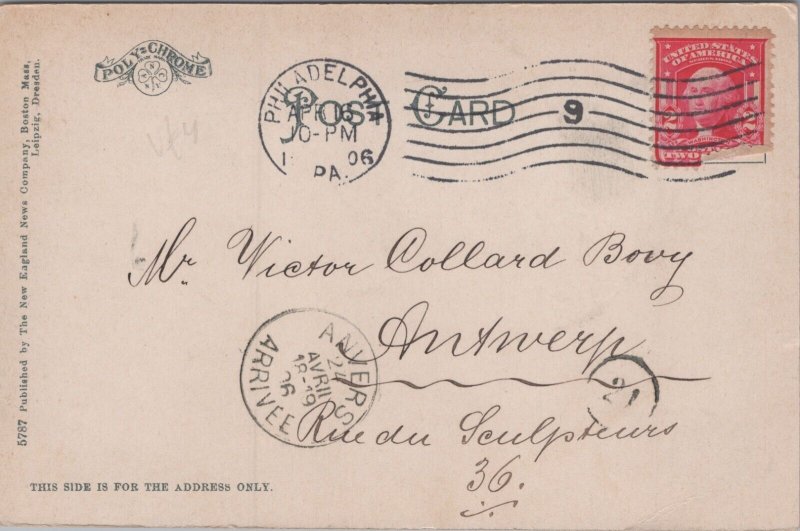 POLY=CHROME
PHILADELPHIA
APR 16
10-PM
06
PA.
POST CARD
9
UNITED STATES
OF AMERICA
2
TWO
Mr Victor Collard Bovy
Antwerp
Rue du Sculpteurs
36.
ANVERS
24
AVRIL
18-19
06
ARRIVEE
21
5787 Published by The New England News Company, Boston Mass.
Leipzig, Dresden.
THIS SIDE IS FOR THE ADDRESS ONLY.